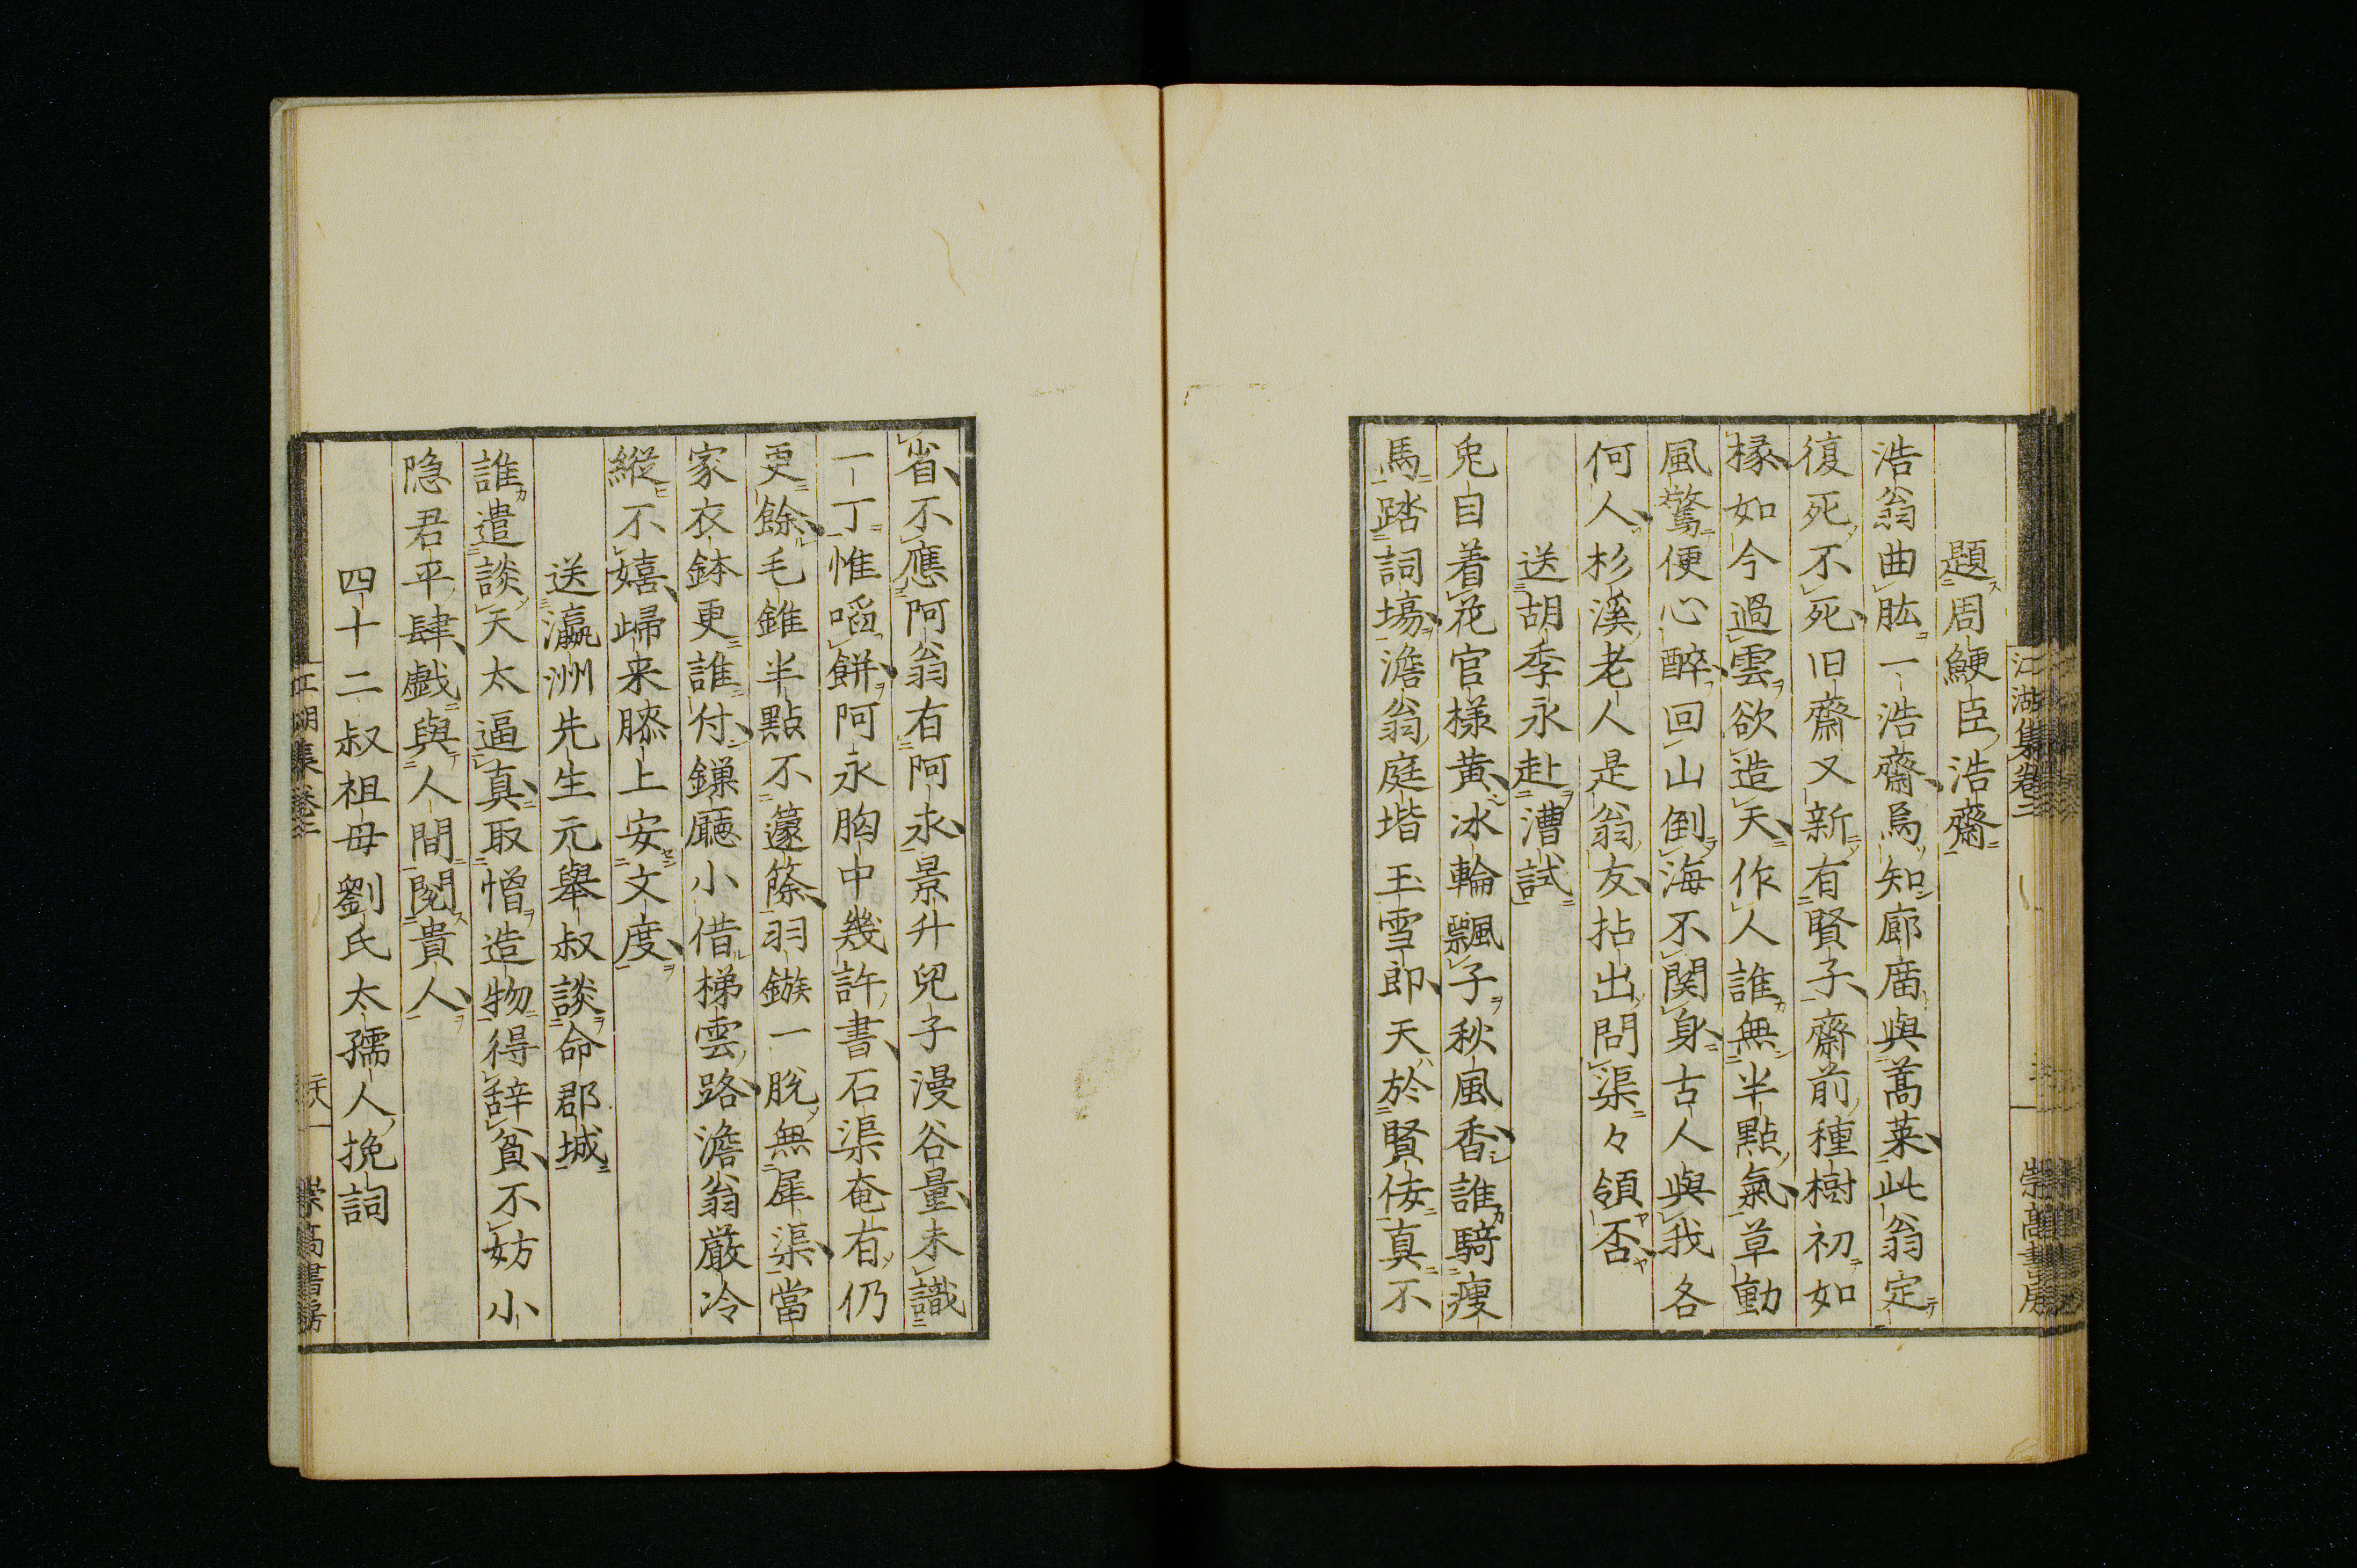 江湖集卷二
崇高書房
題周鯁臣浩齋
浩翁曲肱一浩齋烏知廊庿與蒿萊此翁定
復死不死旧齋又新有賢子齋前種樹初如
椽如今過雲欲造天作人誰無半點氣草動
風驚便心醉回山倒海不関身古人與我各
何人杉溪老人是翁友拈出問渠々領否
送胡季永赴漕試
兔自着花官様黄冰輪飄子秋風香誰騎瘦
馬踏詞塲澹翁庭堦玉雪郎天於賢佞真不
省不應阿翁有阿永景升兒子漫谷量未識
一丁惟啗餅阿永胸中幾許書石渠奄有仍
更餘毛錐半點不籧篨羽鏃一脱無犀渠當
家衣鉢更誰付鏁廳小借梯雲路澹翁厳冷
縱不嬉歸来膝上安文度
送瀛洲先生元舉叔談命郡城
誰遣談天太逼真取憎造物得辞貧不妨小
隐君平肆戯與人間閲貴人
四十二叔祖母劉氏太孺人挽詞
江湖集卷二
二十六
崇高書房